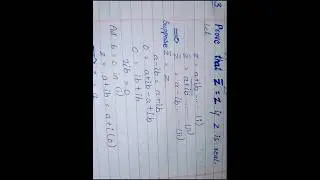 3 Prove that z̅ = z if z is real.
Let
z = a+ib ..... (i)
z̅ = a+ib ..... (ii)
z̅ = a-ib ..... (iii)
Suppose z̅ = z
a-ib = a+ib
0 = a+ib-a+ib
0 = ib+ib
2ib = 0
Put b = 0 in (i)
z = a+ib = a+i(0)